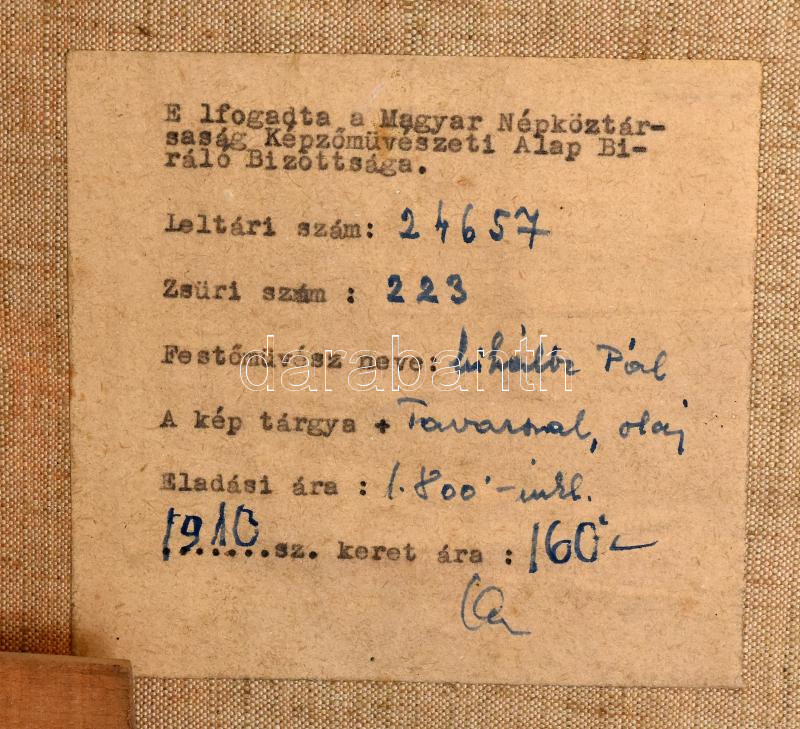 E lfogadta a Magyar Népköztár-
saság Képzőművészeti Alap Bi-
ráló Bizottsága.
Leltári szám: 24657
Zsüri szám : 223
Festőművész neve: Pál
darabanth
A kép tárgya + Tavasszal, olaj
Eladási ára : 1.800'- inkl.
1910.......sz. keret ára : 160'-